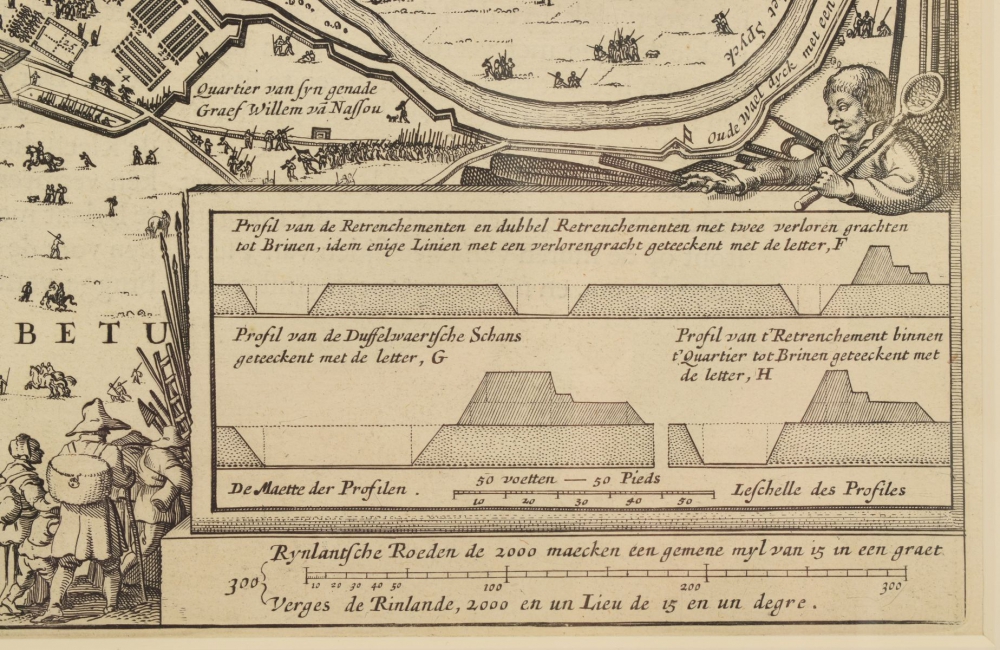 24
Quartier van syn genade
Graef Willem vā Nassou
Spyck
Oude Wael dyck met een
Profil van de Retrenchementen en dubbel Retrenchementen met twee verloren grachten
tot Brinen, idem enige Linien met een verlorengracht geteeckent met de letter, F
Profil van de Duffelwaertsche Schans
geteeckent met de letter, G
Profil van t'Retrenchement binnen
t'Quartier tot Brinen geteeckent met
de letter, H
BETU
50 voetten — 50 Pieds
De Maette der Profilen.
10 20 30 40 50
Leschelle des Profiles
Rynlantsche Roeden de 2000 maecken een gemene myl van 15 in een graet
300
10 20 30 40 50 100 200 300
Verges de Rinlande, 2000 en un Lieu de 15 en un degre.